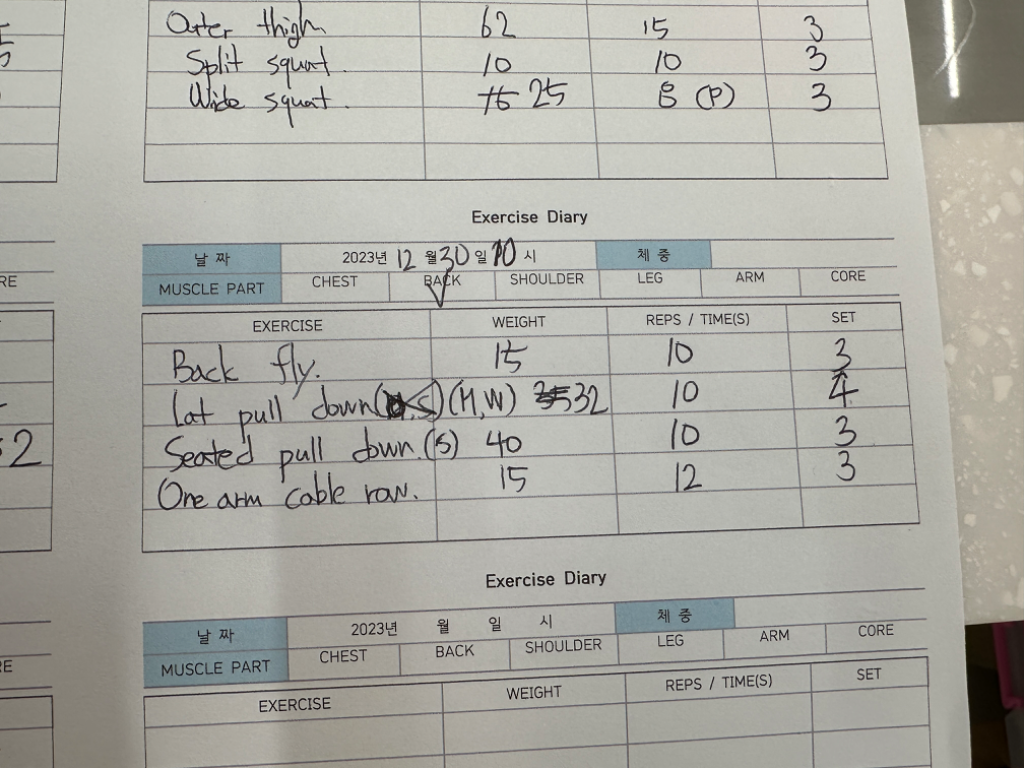 Outer thigh 62 15 3
Split squat. 10 10 3
Wide squat. 25 8 (P) 3
Exercise Diary
날 짜 2023년 12 월 30 일 10 시 체 중
RE MUSCLE PART CHEST BACK SHOULDER LEG ARM CORE
EXERCISE WEIGHT REPS / TIME(S) SET
Back fly. 15 10 3
Lat pull down (M,W) 32 10 4
Seated pull down.(S) 40 10 3
One arm cable row. 15 12 3
Exercise Diary
날 짜 2023년 월 일 시 체 중
RE MUSCLE PART CHEST BACK SHOULDER LEG ARM CORE
EXERCISE WEIGHT REPS / TIME(S) SET